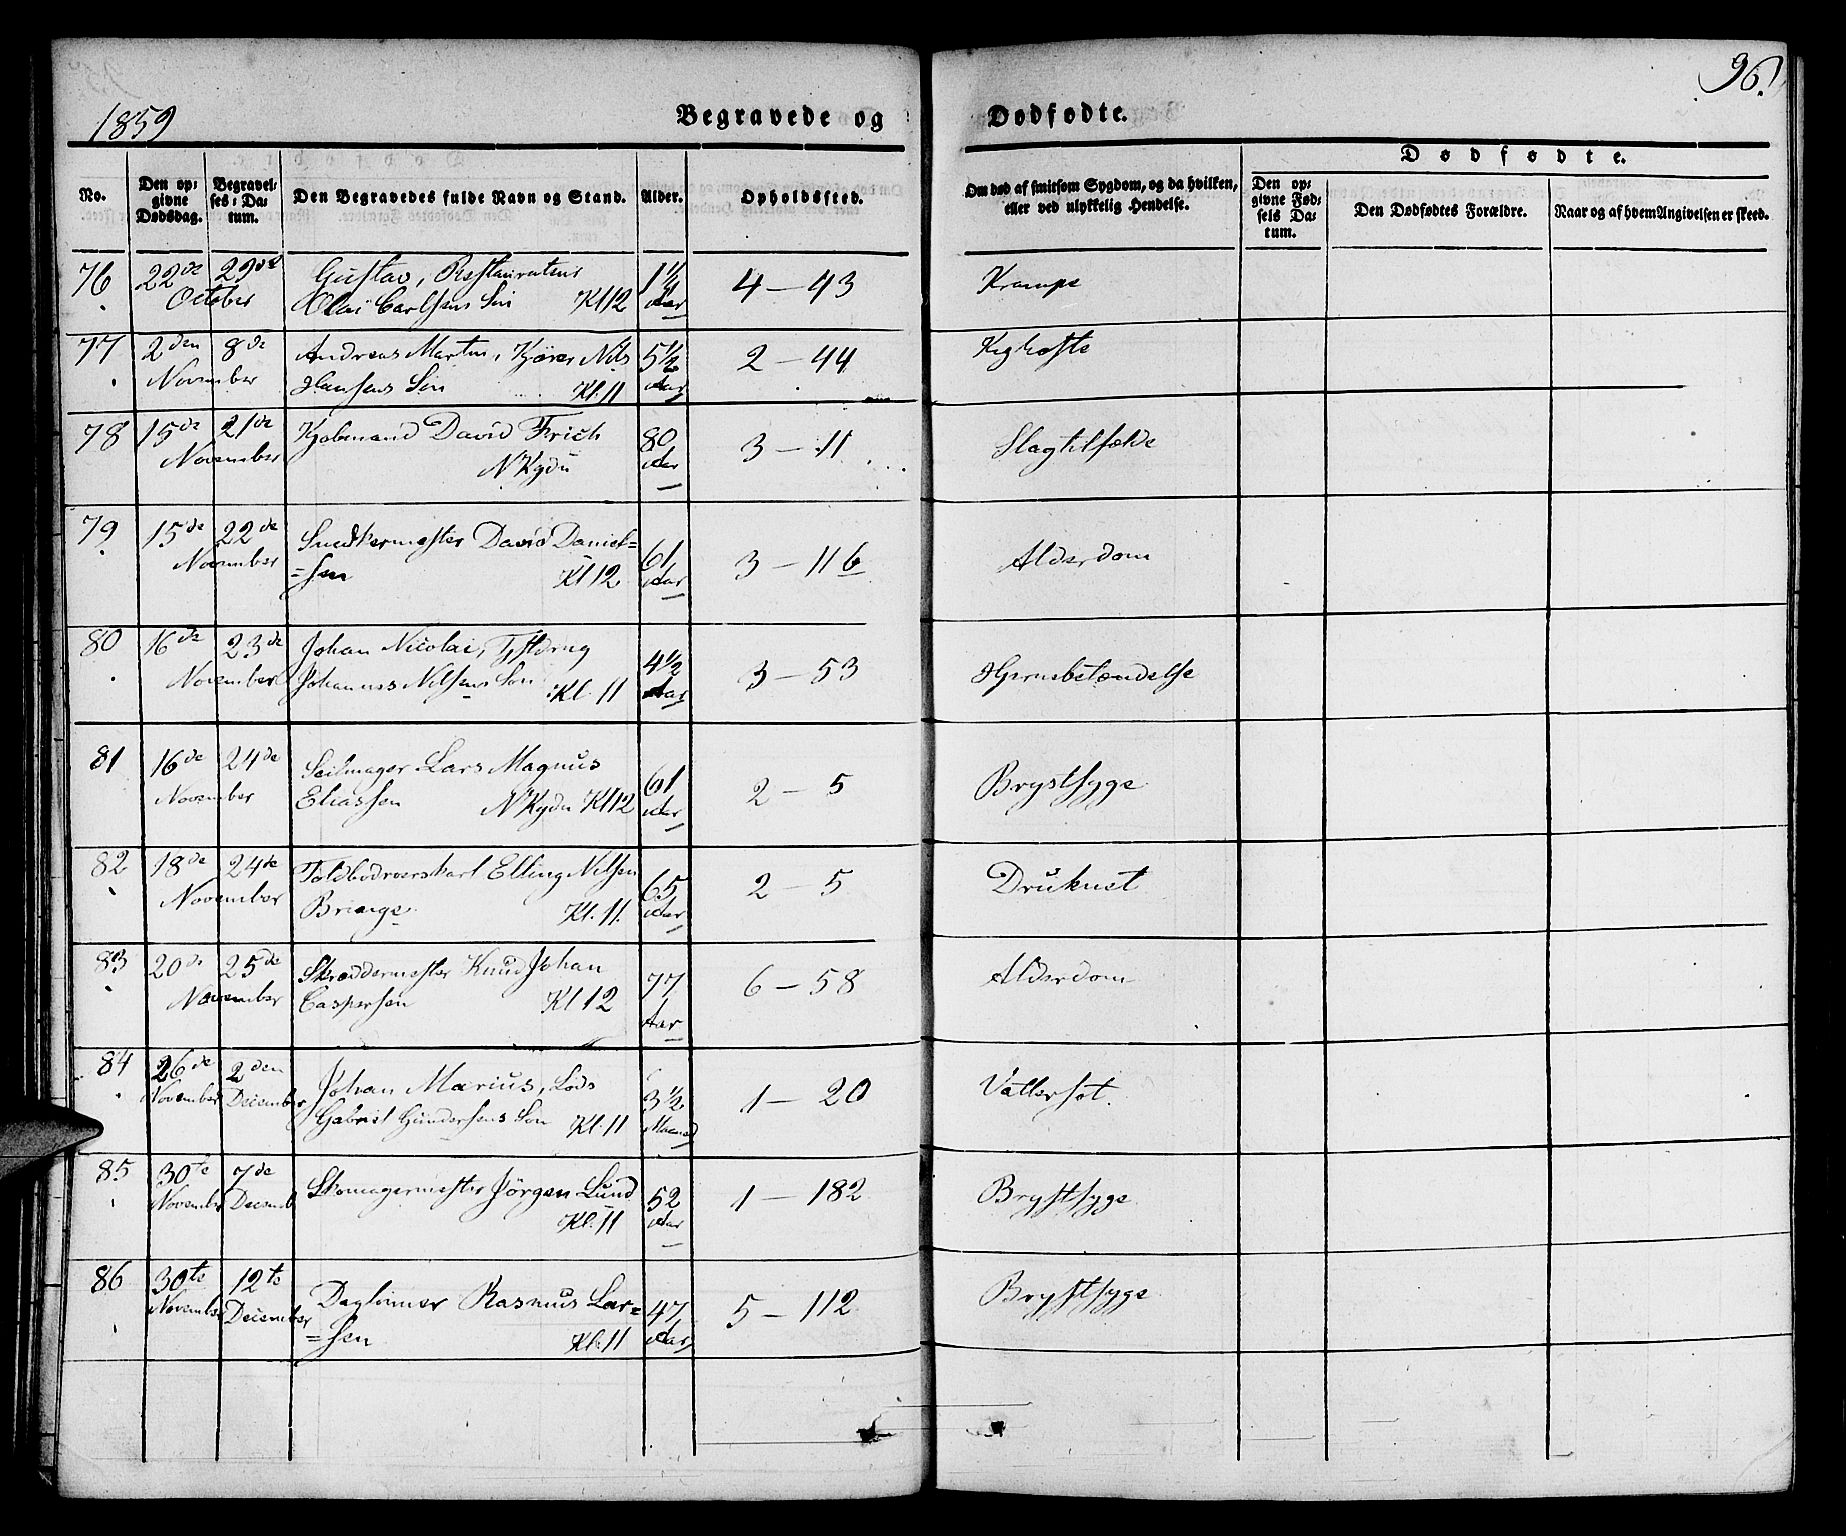 1859
Begravede og
Dødfødte.
96.
No.
Den op-
givne
Dødsdag.
Begravel-
ses-Da-
tum.
Den Begravedes fulde Navn og Stand.
Alder.
Opholdssted.
Om død af smitsom Sygdom, og da hvilken,
eller ved ulykkelig Hendelse.
Dødfødte.
Den op-
givne Fød-
sels Da-
tum.
Den Dødfødtes Forældre.
Naar og af hvem Angivelsen er skeed.
76 22de 29de Gustav, Restaurateur 1½ 4 - 43 Krampe
October Olai Carlsens Sön Kl 12 Aar
77 2den 8de Andreas Martin, Kjörer Nils 5½ 2 - 44 Kighoste
November Hansens Sön Kl. 11 Aar
78 15de 21de Kjøbmand David Frich 80 3 - 11 Slagtilfælde
November N Kgdn Aar
79 15de 22de Snedkermester David Daniel= 61 3 - 116 Alderdom
November =sen Kl 12 Aar
80 16de 23de Johan Nicolai, 4½ 3 - 53 Hjernebetændelse
November Johannes Nilsens Sön Kl. 11 Aar
81 16de 24de Seilmager Lars Magnus 61 2 - 5 Brystsyge
November Eliassen N Kgdn Kl 12 Aar
82 18de 24de Toldbodroerskarl Elling Nilsen 65 2 - 5 Druknet
November Bringe Kl. 11. Aar
83 20de 25de Skræddermester Knud Johan 77 6 - 58 Alderdom
November Caspersen Kl 12 Aar
84 26de 2den Johan Marius, Lods 3½ 1 - 20 Vattersot.
November December Gabriel Gundersens Sön Kl. 11 Maaned
85 30te 7de Skomagermester Jörgen Lund 52 1 - 182 Brystsyge
November Decemb Kl. 11 Aar
86 30te 12te Daglönner Rasmus Lar= 47 5 - 112 Brystsyge
November December =sen Kl. 11 Aar